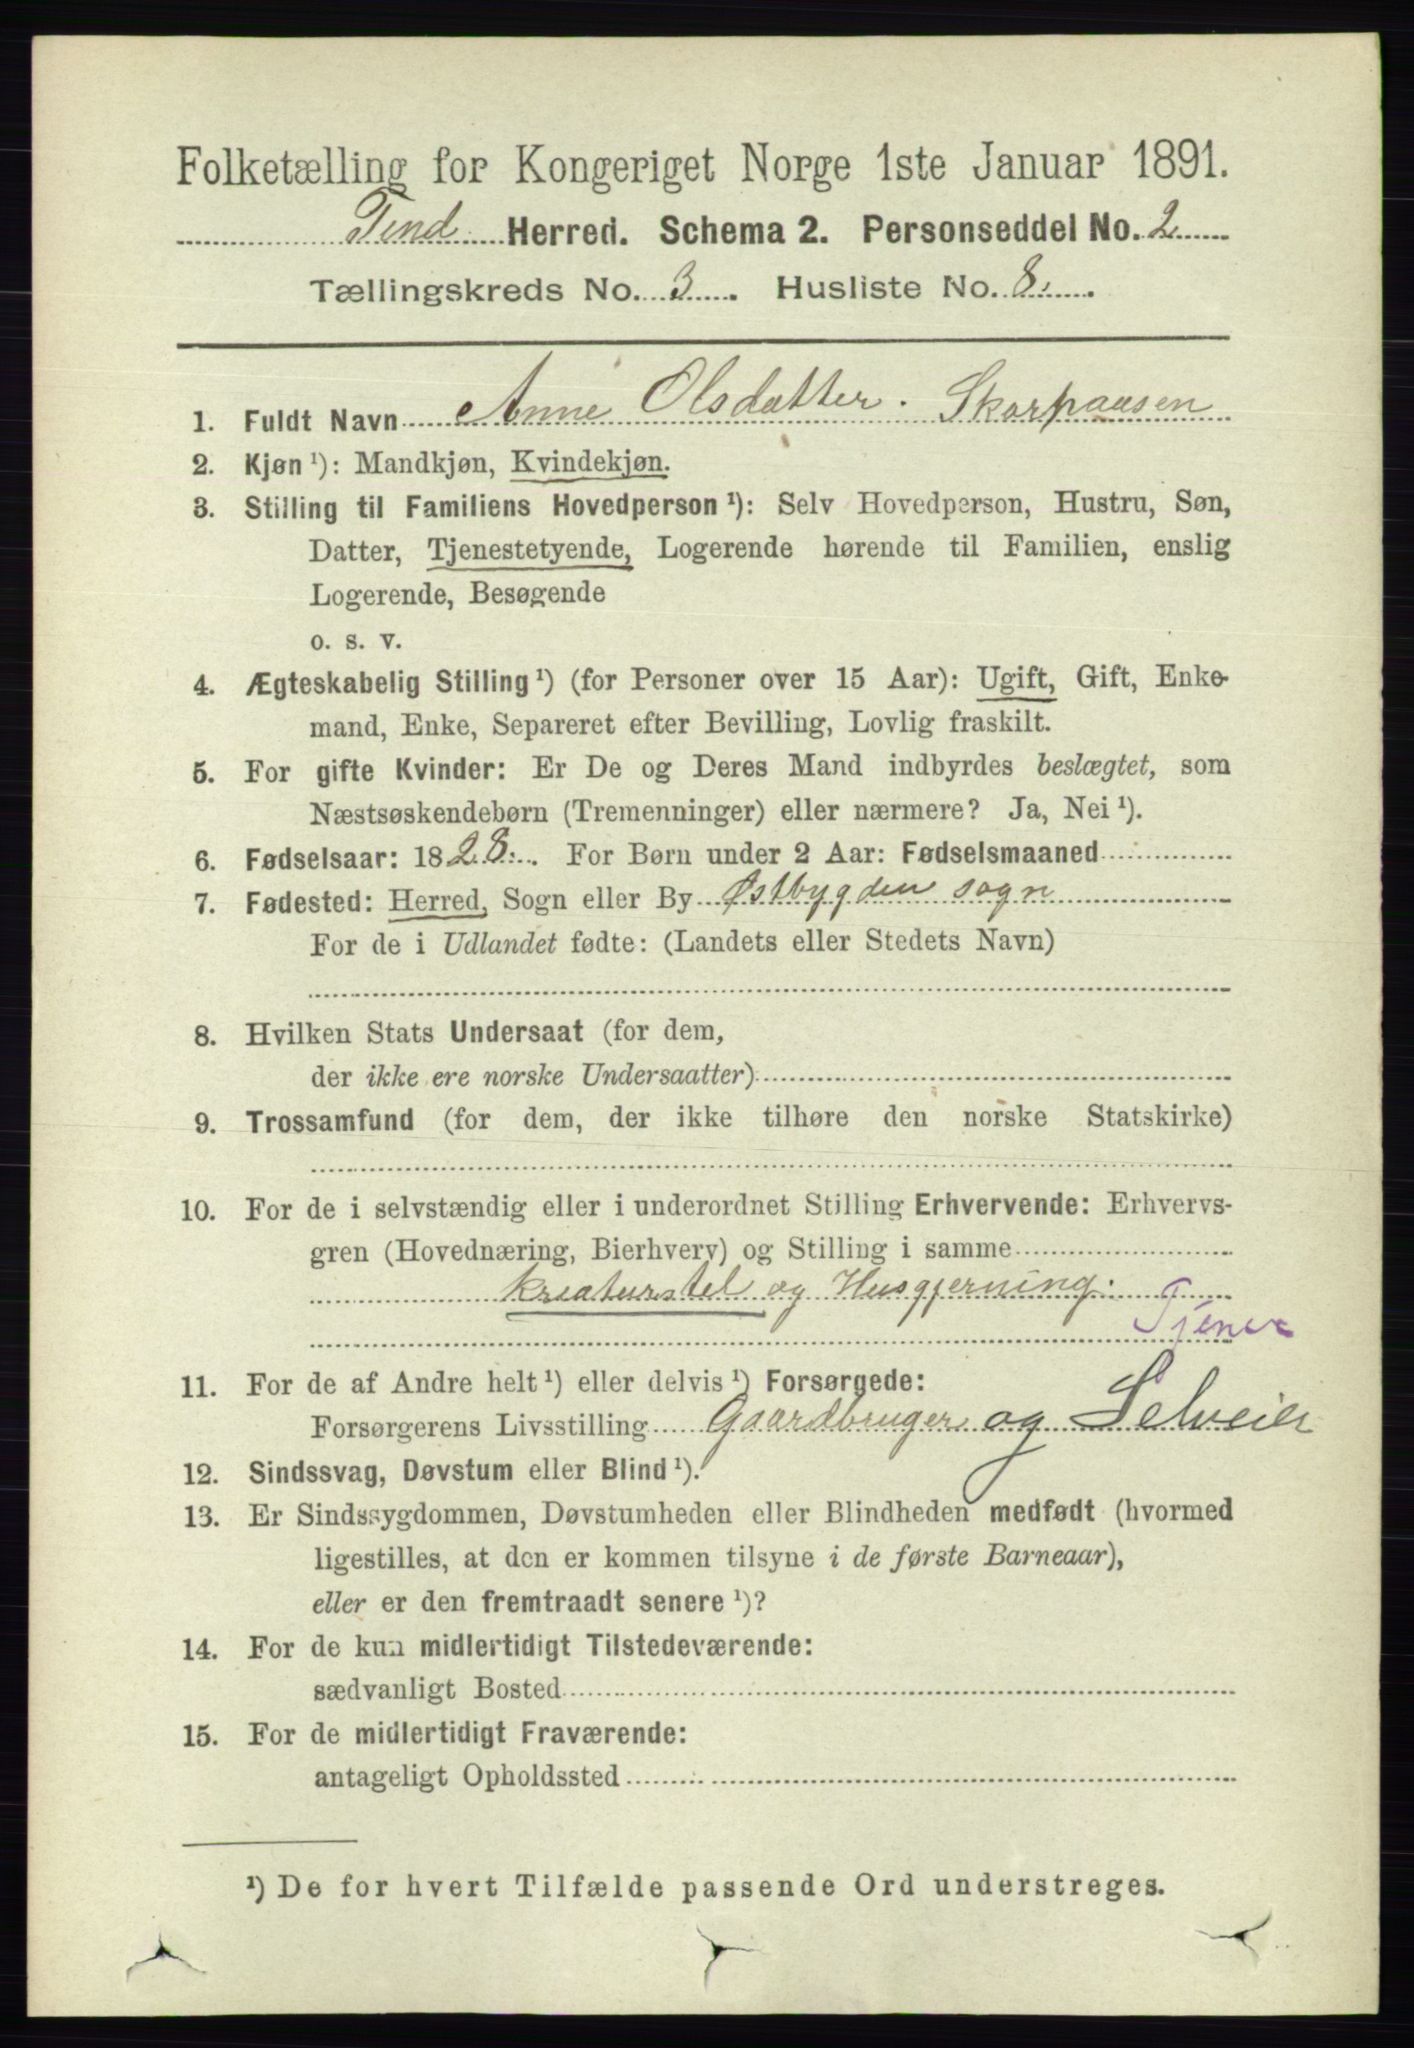 Folketælling for Kongeriget Norge 1ste Januar 1891.
Tind Herred. Schema 2. Personseddel No. 2
Tællingskreds No. 3. Husliste No. 8.
1. Fuldt Navn Anne Olsdatter. Skarpaasen
2. Kjøn ¹): Mandkjøn, Kvindekjøn.
3. Stilling til Familiens Hovedperson ¹): Selv Hovedperson, Hustru, Søn,
Datter, Tjenestetyende, Logerende hørende til Familien, enslig
Logerende, Besøgende
o. s. v.
4. Ægteskabelig Stilling ¹) (for Personer over 15 Aar): Ugift, Gift, Enke-
mand, Enke, Separeret efter Bevilling, Lovlig fraskilt.
5. For gifte Kvinder: Er De og Deres Mand indbyrdes beslægtet, som
Næstsøskendebørn (Tremenninger) eller nærmere? Ja, Nei ¹).
6. Fødselsaar: 1828. For Børn under 2 Aar: Fødselsmaaned
7. Fødested: Herred, Sogn eller By Østbygden sogn
For de i Udlandet fødte: (Landets eller Stedets Navn)
8. Hvilken Stats Undersaat (for dem,
der ikke ere norske Undersaatter)
9. Trossamfund (for dem, der ikke tilhøre den norske Statskirke)
10. For de i selvstændig eller i underordnet Stilling Erhvervende: Erhvervs-
gren (Hovednæring, Bierhverv) og Stilling i samme
kreaturstel og Husgjerning.
Tjener
11. For de af Andre helt ¹) eller delvis ¹) Forsørgede:
Forsørgerens Livsstilling Gaardbruger og Selveier
12. Sindssvag, Døvstum eller Blind ¹).
13. Er Sindssygdommen, Døvstumheden eller Blindheden medfødt (hvormed
ligestilles, at den er kommen tilsyne i de første Barneaar),
eller er den fremtraadt senere ¹)?
14. For de kun midlertidigt Tilstedeværende:
sædvanligt Bosted
15. For de midlertidigt Fraværende:
antageligt Opholdssted
¹) De for hvert Tilfælde passende Ord understreges.